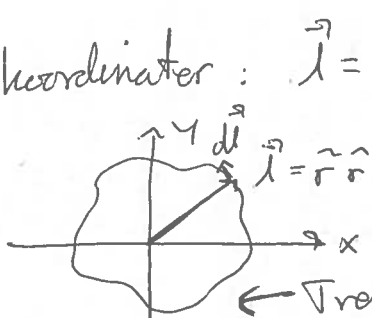 koordinater : l⃗ =
y
dl⃗
l⃗ = r̃ r̂
x
← Tre